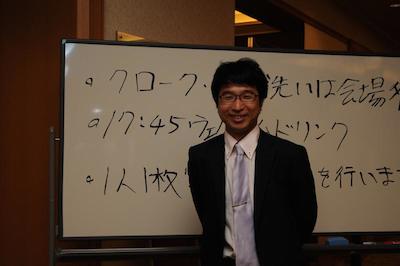 ・クローク・ 洗いは会場
・17:45 ウェ ドリンク
・1人1枚 を行いま